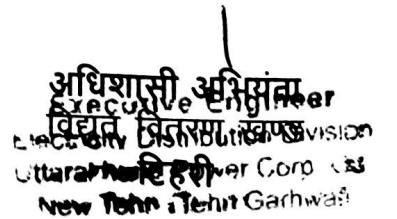 अधिशासी अभियंता
Executive Engineer
विद्युत वितरण खण्ड
Electricity Distribution Division
टिहरी
Uttarakhand Power Corp. Ltd
New Tehri, Tehri Garhwal